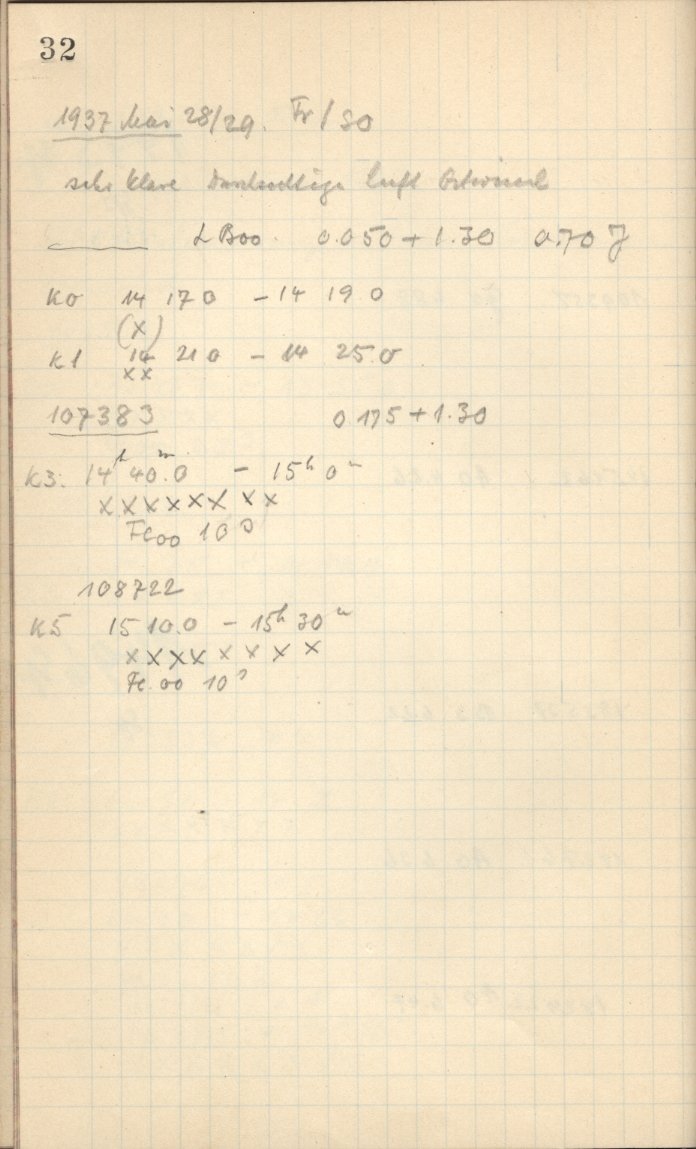 32
1937 Mai 28/29. Fr/So
sehr klare durchsichtige Luft
α Boo. 0.050 + 1.30 0.70 J
K0 14 17 0 - 14 19 0
(x)
K1 14 21 0 - 14 25.0
x x
107383 0 175 + 1.30
K3. 14h 40m.0 - 15h 0m
x x x x x x x x
Fe00 10s
108722
K5 15 10.0 - 15h 30m
x x x x x x x x
Fe.00 10s